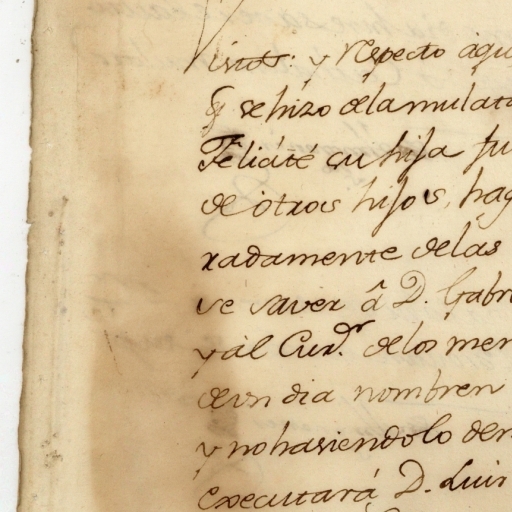 Vistos: y respecto aqu
q̃ se hizo dela mulat
Felicité su hija fu
de otros hijos, hag
radamente delas
se saver â D. Gabri
y al Cur.ᵈᵒʳ delos men
deun dia nombren
y nohasiendolo den
executará D. Luis